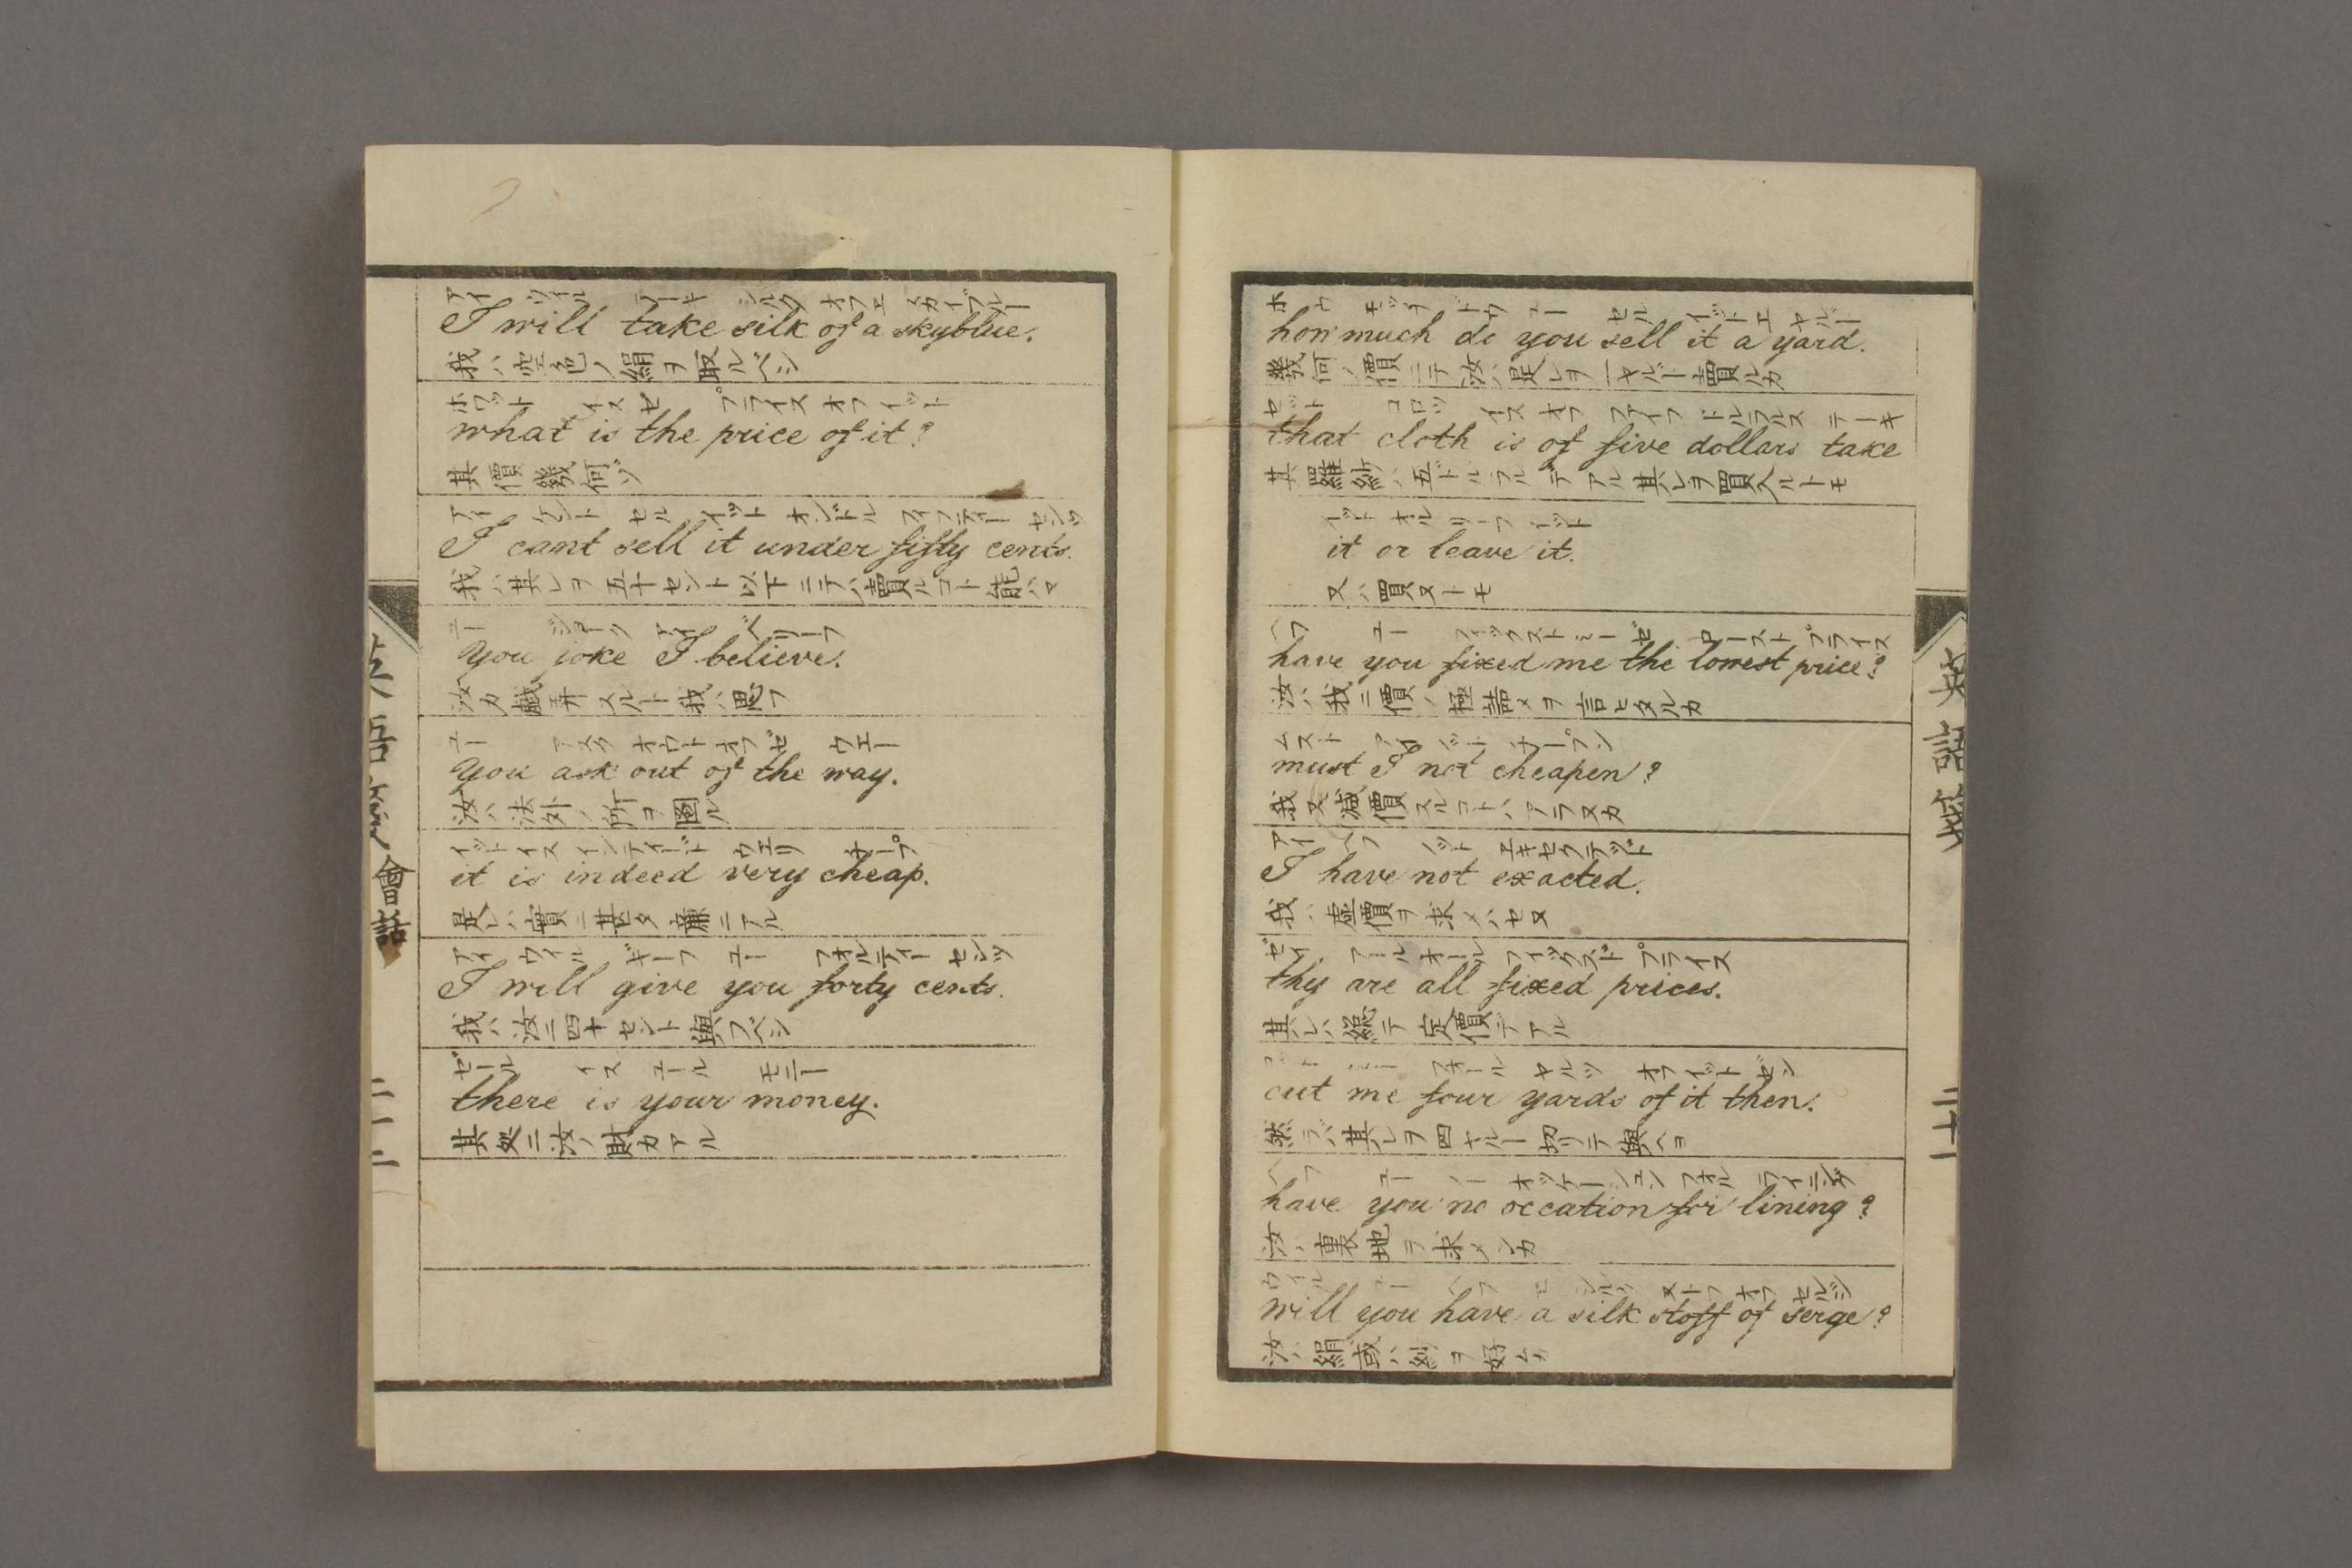 アイ ウイル テーキ シルク オフ エ スカイブルー
I will take silk of a skyblue.
我ハ空色ノ絹ヲ取ルベシ
ホワット イス ゼ プライス オフ イット
what is the price of it?
其價幾何ゾ
アイ ケント セル イット オンドル フイフティー センツ
I cant sell it under fifty cents.
我ハ其レヲ五十セント以下ニテハ賣ルコト能ハズ
ユー ジョーク アイ ベリーフ
You joke I believe.
汝カ戯弄スルト我ハ思フ
ユー アスク オウト オフ ゼ ウエー
You ask out of the way.
汝ハ法外ノ所ヲ圖ル
イット イス インディード ウエリ チープ
it is indeed very cheap.
是レハ實ニ甚タ廉ニアル
アイ ウイル ギーフ ユー フオルティー センツ
I will give you forty cents.
我ハ汝ニ四十セント與フベシ
ゼール イス ユール モニー
there is your money.
其処ニ汝ノ財カアル
會話
二十二
ホウ モッチ ドウ ユー セル イット エ ヤルド
how much do you sell it a yard.
幾何ノ價ニテ汝ハ是レヲ一ヤルド賣ルカ
ゼット コロッ イス オフ ファイフ ドルラルス テーキ
that cloth is of five dollars take
其羅紗ハ五ドルラルデアル其レヲ買入ルトモ
イット オル リーフ イット
it or leave it.
又ハ買ヌトモ
ヘフ ユー フィックスト ミー ゼ ロースト プライス
have you fixed me the lowest price?
汝ハ我ニ價ノ極詰メヲ言ヒタルカ
ムスト アイ ノット チープン
must I not cheapen?
我又減價スルコトハアラヌカ
アイ ヘフ ノット エキセクテッド
I have not exacted.
我ハ虚價ヲ求メハセヌ
ゼイ アール オール フィックスド プライス
thy are all fixed prices.
其レハ緫テ定價デアル
コット ミー フォール ヤルツ オフ イット ゼン
cut me four yards of it then.
然ラハ其レヲ四ヤルド切リテ與ヘヨ
ヘフ ユー ノー オッケーション フオル ライニング
have you no occation for lining?
汝ハ裏地ヲ求メンカ
ウイル ユー ヘフ エ シルク ストフ オフ セルジ
will you have a silk stoff of serge?
汝ハ絹或ハ ヲ好ムカ